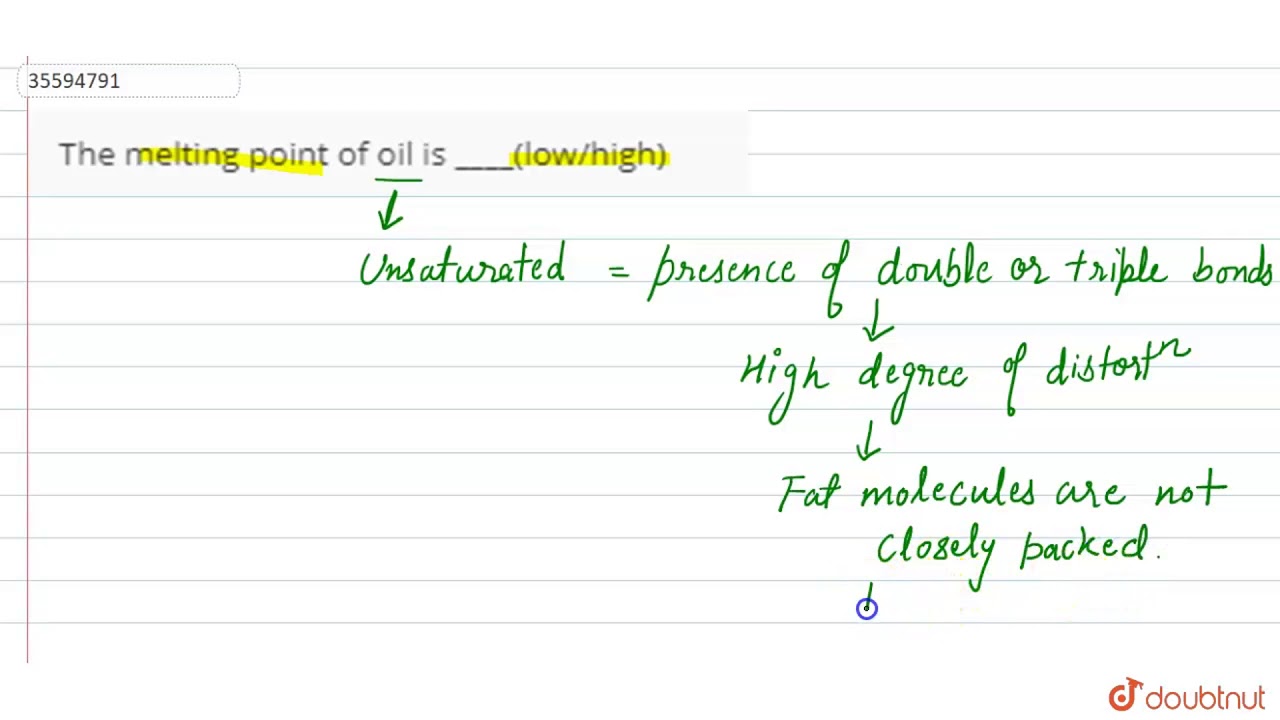 35594791
The melting point of oil is ____(low/high)
Unsaturated = presence of double or triple bonds
High degree of distortⁿ
Fat molecules are not
closely packed.
doubtnut